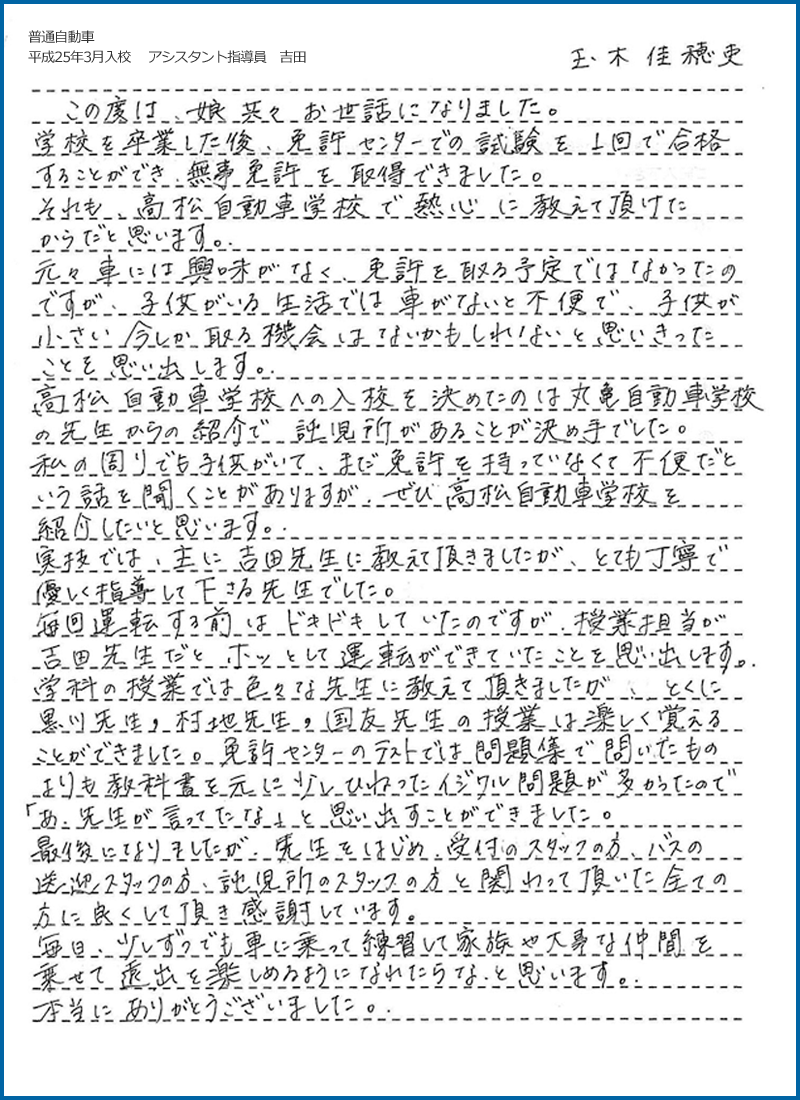 普通自動車
平成25年3月入校 アシスタント指導員 吉田
玉木佳穂吏
この度は、娘共々お世話になりました。
学校を卒業した後、免許センターでの試験を1回で合格
することができ、無事免許を取得できました。
それも、高松自動車学校で熱心に教えて頂けた
からだと思います。
元々車には興味がなく、免許を取る予定ではなかったの
ですが、子供がいる生活では車がないと不便で、子供が
小さい今しか取る機会はないかもしれないと思いきった
ことを思い出します。
高松自動車学校への入校を決めたのは丸亀自動車学校
の先生からの紹介で託児所があることが決め手でした。
私の周りでも子供がいて、まだ免許を持っていなくて不便だと
いう話を聞くことがありますが、ぜひ高松自動車学校を
紹介したいと思います。
実技では、主に吉田先生に教えて頂きましたが、とても丁寧で
優しく指導して下さる先生でした。
毎回運転する前はドキドキしていたのですが、授業担当が
吉田先生だとホッとして運転ができていたことを思い出します。
学科の授業では色々な先生に教えて頂きましたが、とくに
黒川先生,村地先生,国友先生の授業は楽しく覚える
ことができました。免許センターのテストでは問題集で問いたもの
よりも教科書を元に少しひねったイジワル問題が多かったので
「あ、先生が言ってたな」と思い出すことができました。
最後になりましたが、先生をはじめ、受付のスタッフの方、バスの
送迎スタッフの方、託児所のスタッフの方と関わって頂いた全ての
方に良くして頂き感謝しています。
毎日、少しずつでも車に乗って練習して家族や大事な仲間を
乗せて遠出を楽しめるようになれたらな、と思います。
本当にありがとうございました。